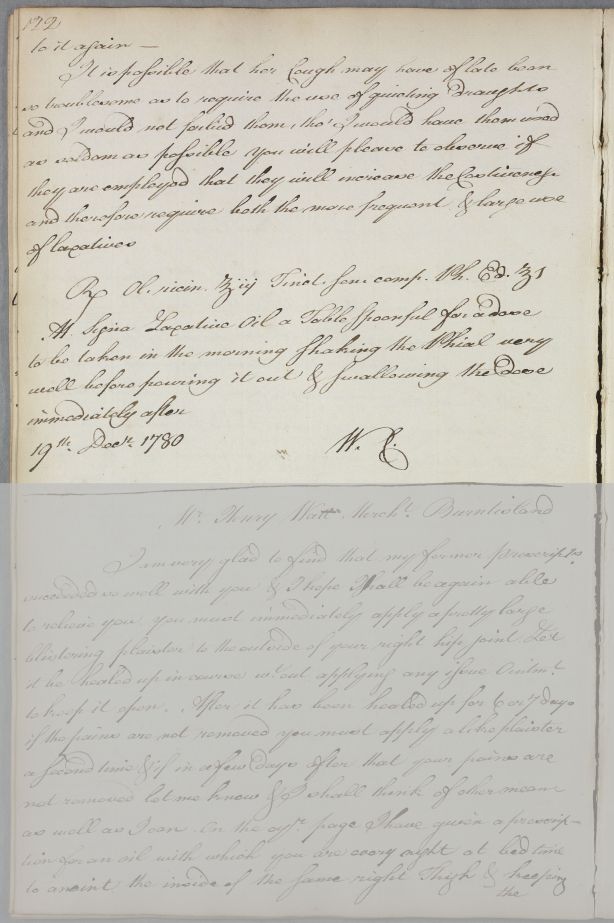 122
to it again —
It is possible that her Cough may have of late been
so troublesome as to require the use of quieting Draughts
and I would not forbid them, tho' I would have them used
as seldom as possible you will please to observe if
they are employed that they will increase the Costiveness
and therefore require both the more frequent & large use
of laxatives
Rx Ol. ricin. ℥iij Tinct. sen. comp. Ph. Ed. ℥1
M. Signa Laxative Oil a Table Spoonful for a dose
to be taken in the morning shaking the Phial very
well before pouring it out & swallowing the Dose
immediately after
19th. Decr. 1780 W. C.
Mr. Henry Watt Mercht. Burntisland
I am very glad to find that my former prescripts.
succeeded so well with you & I hope I shall be again able
to relieve you you must immediately apply a pretty large
blistering plaister to the outside of your right hip joint Let
it be healed up in course wtout applying any issue Ointmt.
to keep it open. After it has been healed up for 6 or 7 days
if the pains are not removed you must apply a like plaister
a second time & if in a few days after that your pains are
not removed let me know & I shall think of other means
as well as I can. On the oyr. page I have given a prescrip-
tion for an oil with which you are every night at bed time
to anoint the inside of the same right Thigh & keeping
the